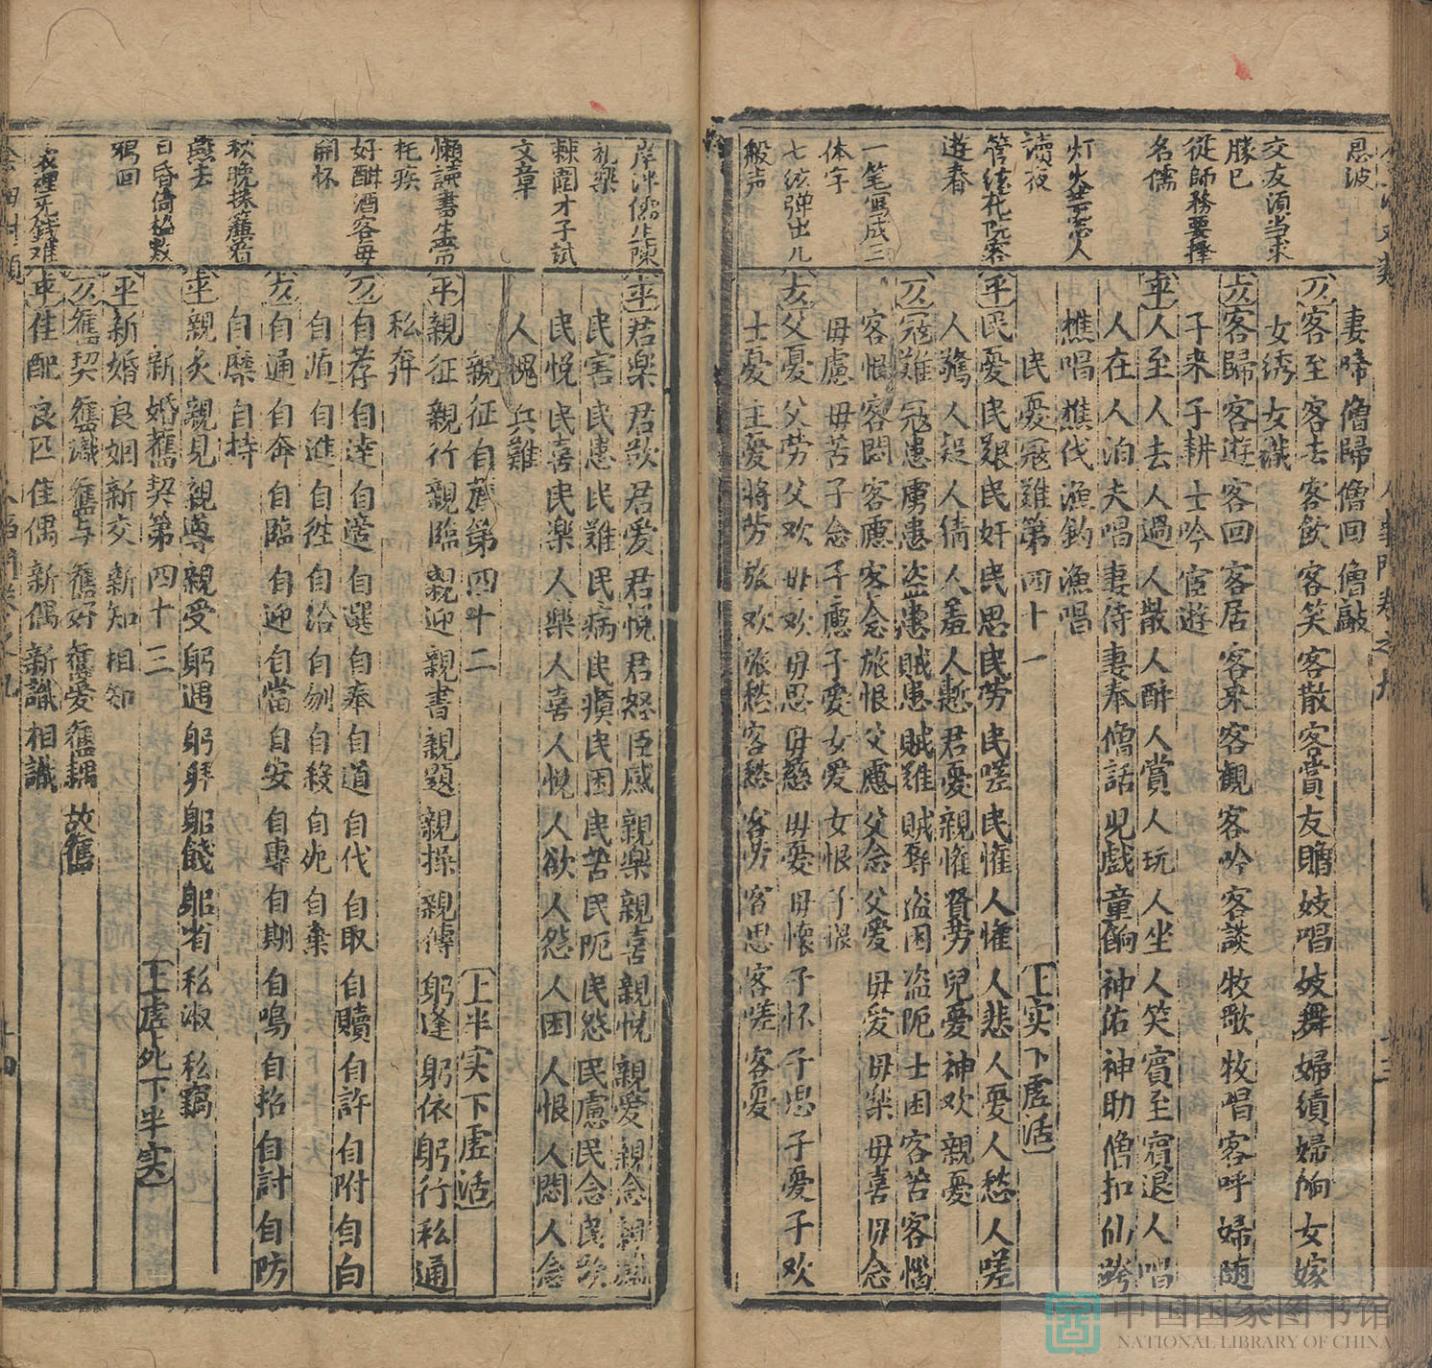 恩波
交友須當求
勝己
從師務要擇
名儒
灯火
讀夜
遊春
一筆寫成三
体字
七絃弹出几
般声
妻啼 僧歸 僧回 僧敲
仄 客至 客去 客飲 客笑 客散 客賞 友贈 妓唱 妓舞 婦績 婦餉 女嫁
女绣 女織
仄 客歸 客遊 客回 客居 客來 客觀 客吟 客談 牧歌 牧唱 客呼 婦随
子来 子耕 士吟 宦遊
平 人至 人去 人過 人散 人醉 人賞 人玩 人坐 人笑 賓至 賓退 人唱
人在 人泊 夫唱 妻侍 妻奉 僧話 児戯 童餉 神佑 神助 僧扣 仙跨
樵唱 樵伐 漁釣 漁唱
民憂寇難第四十一 上实下虚活
平 民憂 民艱 民奸 民思 民劳 民嗟 民惟 人惟 人悲 人憂 人愁 人嗟
人驚 人疑 人猜 人羞 人慙 君憂 親惟 賢劳 兒憂 神欢 親憂
仄 寇難 寇患 虜患 盗患 賊患 賊難 賊辱 盗困 盗阨 士困 客苦 客惱
客恨 客悶 客慮 客念 旅恨 父慮 父念 父爱 母爱 母樂 母喜 母念
母慮 母苦 子念 子慮 子爱 女爱 女恨
父憂 父劳 父欢 母欢 母思 母慈 母憂 母懷 子怀 子思 子憂 子欢
士憂 主憂 將劳 旅欢 旅愁 客愁 客劳 客思 客嗟 客憂
礼樂
棘圍才子試
文章
懒讀書生常
托疾
好酣酒客每
開怀
秋晚珠簾看
燕去
日昏倚檻数
鴉回
君樂 君欲 君爱 君悦 君怒 臣慼 親樂 親喜 親悦 親爱 親念
民害 民患 民難 民病 民瘼 民困 民苦 民阨 民怨 民慮 民念
民悦 民喜 民樂 人樂 人喜 人悦 人欲 人怨 人困 人恨 人悶 人念
人愧 兵難
親征自薦第四十二 上半实下虚活
平 親征 親行 親臨 親迎 親書 親題 親操 親傳 躬逢 躬依 躬行 私通
私奔
仄 自荐 自達 自適 自選 自奉 自道 自代 自取 自贖 自許 自附 自白
自進 自徃 自洽 自刎 自殺 自棄
自通 自奔 自臨 自迎 自當 自安 自專 自期 自鳴 自招 自計 自防
自持
平 親炙 親見 親導 親受 躬遇 躬拜 躬餞 躬省 私淑 私竊
新婚舊契第四十三 上虚死下半实
平 新婚 良姻 新交 新知 相知
仄 舊契 舊識 舊与 舊好 舊爱 舊耦 故舊
平 佳配 良匹 佳偶 新偶 新識 相識
中国国家图书馆
NATIONAL LIBRARY OF CHINA